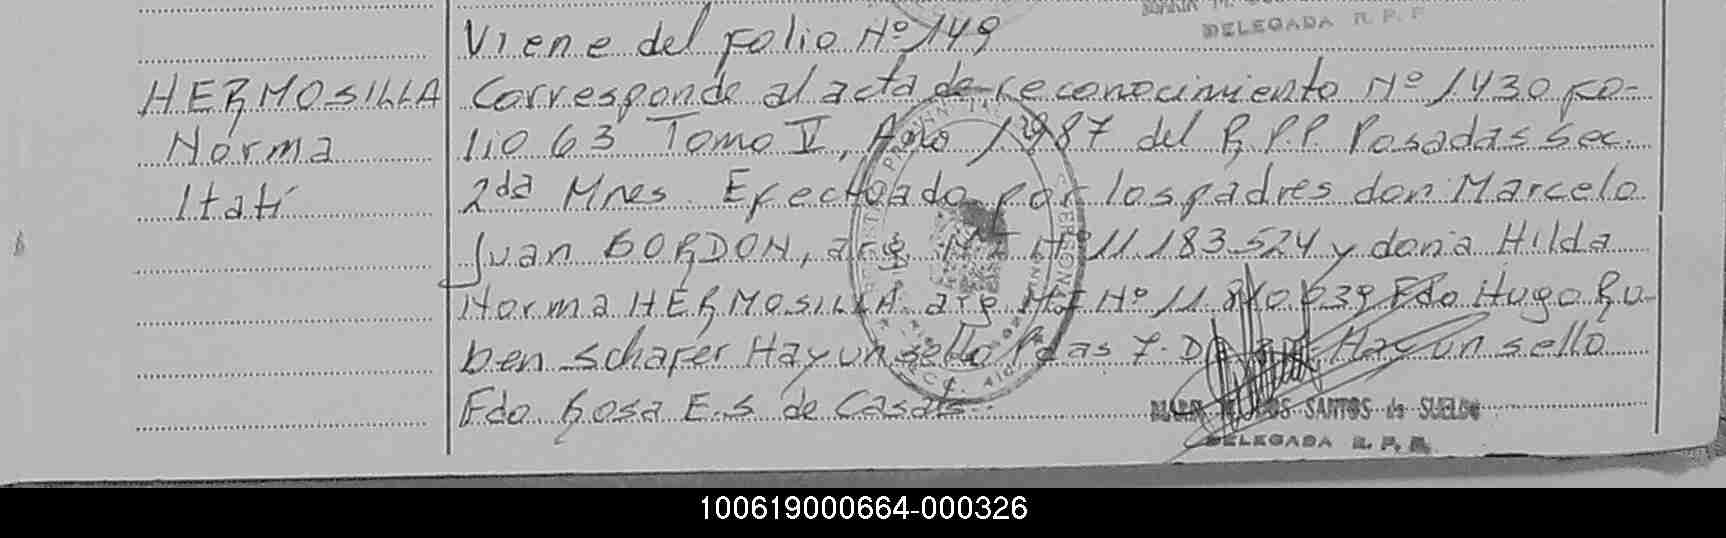 DELEGADA R. P. P
Viene del folio Nº 149
HERMOSILLA Corresponde al acta de reconocimiento Nº 1430 fo-
Norma lio 63 Tomo V, Año 1987 del R.P.P. Posadas Sec.
Itatí 2da Mnes. Efectuado por los padres don Marcelo
Juan BORDON, arg Nº 11.183.524 y doña Hilda
Norma HERMOSILLA arg. M.I Nº 11.810.639 Fdo Hugo Ru-
ben Schafer Hay un sello Pdas 7. Hay un sello
Fdo. Rosa E.S de Casals..
SANTOS de SUELDO
DELEGADA R. P. P.
100619000664-000326